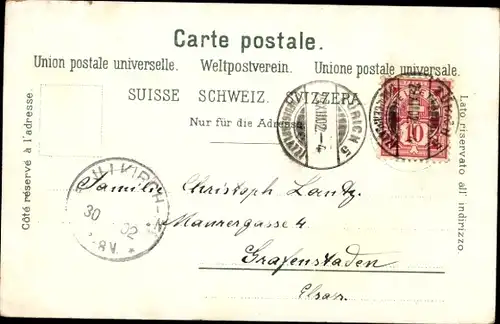 Carte postale.
Union postale universelle. Weltpostverein. Unione postale universale.
SUISSE SCHWEIZ. SVIZZERA.
Nur für die Adresse
Côté réservé à l'adresse.
Lato riservato all' indirizzo.
ZÜRICH 5
XII.02.–4
10
30
02
Familie Christoph Lantz
Maurergasse 4
Grafenstaden
Elsass.